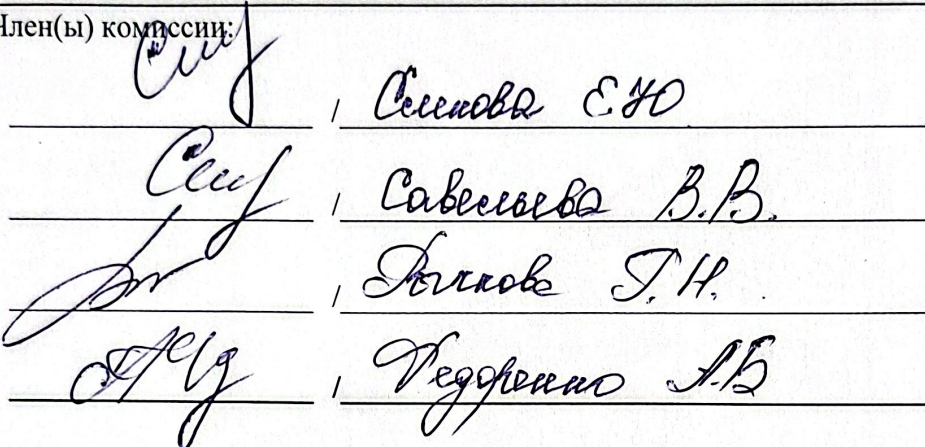 Член(ы) комиссии:
/ Е.Ю
/ Савельева В.В.
/ Рычкова Г.Н.
/ Федоренко А.Б